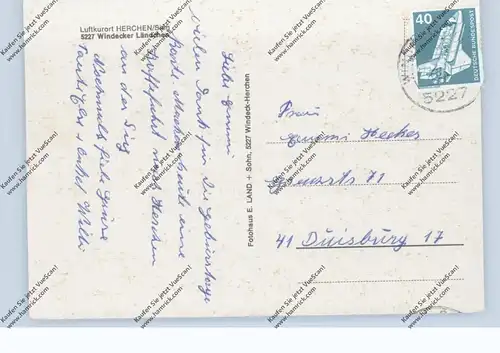 Luftkurort HERCHEN/Sieg
5227 Windecker Ländchen
Liebe Emmi
vielen Dank für die Geburtstags
karte. Machen heute eine
nach Herchen
an der Sieg
Nochmals viele Grüße
Willi
Fotohaus E. LAND + Sohn, 5227 Windeck-Herchen
40
DEUTSCHE BUNDESPOST
5227
Frau
Emmi
71
41 Duisburg 17
Kaufen Sie jetzt VueScan!
www.hamrick.com